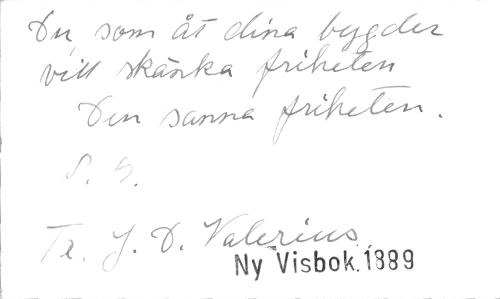 Du som åt dina bygder
vill skänka friheten
Den sanna friheten.
S. G.
Tr. J. D. Valerius
Ny Visbok. 1889